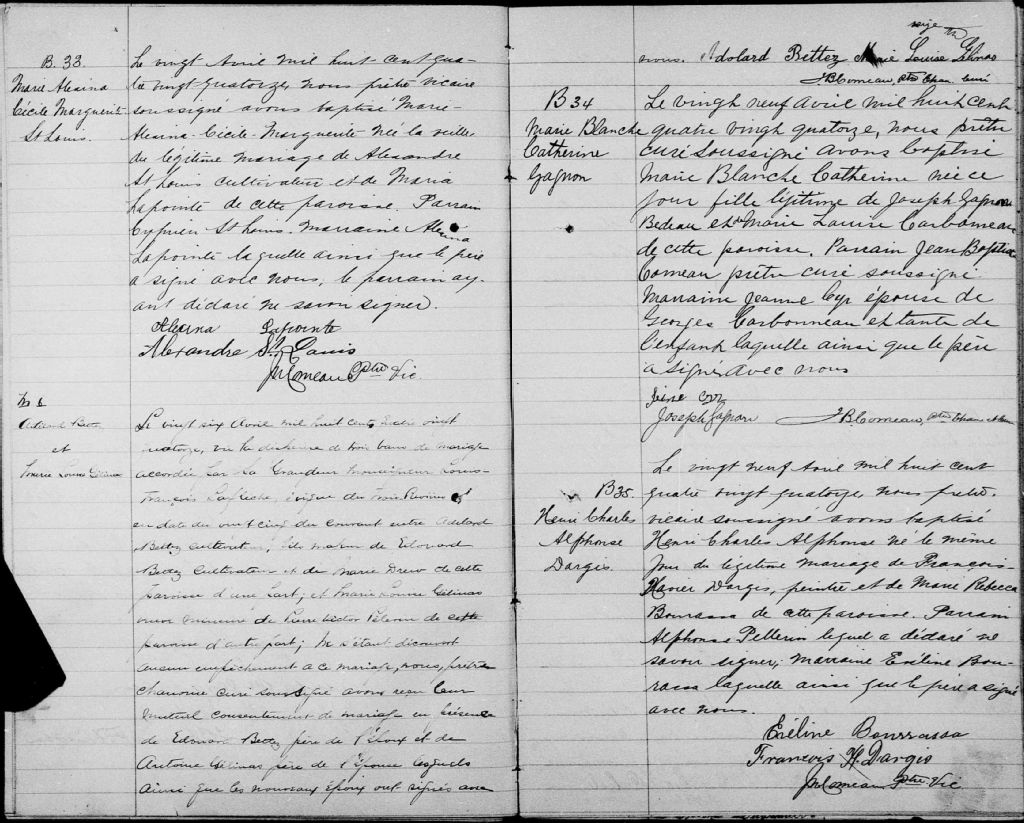 B. 33.
Marie Alexina
Cécile Marguerite
St Louis.
Le vingt Avril mil huit cent qua-
tre vingt quatorze, nous prêtre vicaire
soussigné avons baptisé Marie-
Alexina-Cécile-Marguerite née la veille
du légitime mariage de Alexandre
St Louis cultivateur et de Maria
Lapointe de cette paroisse. Parrain
Cyprien St Louis. Marraine Alexina
Lapointe laquelle ainsi que le père
a signé avec nous, le parrain ay-
ant déclaré ne savoir signer.
Alexina Lapointe
Alexandre St Louis
Comeau Ptre Vic.
M 6
Adelard Bettez
et
Marie Louise Gélinas
Le vingt six Avril mil huit cent quatre vingt
quatorze, vu la dispense de trois bans de mariage
accordée par Sa Grandeur Monseigneur Louis-
François Laflèche, évêque des Trois Rivières
en date du vingt cinq du courant entre Adelard
Bettez cultivateur, fils majeur de Edouard
Bettez cultivateur et de Marie Drew de cette
paroisse d'une part; et Marie Louise Gélinas
mineure de de cette
paroisse d'autre part; ne s'étant découvert
aucun empêchement a ce mariage, nous, prêtre
chanoine curé soussigné avons reçu leur
mutuel consentement de mariage en présence
de Edouard Bettez père de l'époux et de
Antoine Gélinas père de l'épouse lesquels
ainsi que les nouveaux époux ont signés avec
nous. Adolard Bettez Marie Louise Gélinas
JB Comeau, Ptre Chan. Curé
B 34
Marie Blanche
Catherine
Gagnon
Le vingt neuf Avril mil huit cent
quatre vingt quatorze, nous prêtre
curé soussigné avons baptisé
Marie Blanche Catherine née ce
jour fille légitime de Joseph Gagnon
Bedeau et de Marie Louise Carbonneau
de cette paroisse. Parrain Jean Baptiste
Comeau prêtre curé soussigné
Marraine Jeanne Cyr épouse de
Georges Carbonneau et tante de
l'enfant laquelle ainsi que le père
a signé avec nous
Joseph Gagnon JB Comeau, Ptre Chan.
B35.
Henri Charles
Alphonse
Dargis.
Le vingt neuf Avril mil huit cent
quatre vingt quatorze nous prêtre.
vicaire soussigné avons baptisé
Henri Charles Alphonse né le même
jour du légitime mariage de François-
Xavier Dargis, peintre et de Marie Rebecca
Bourassa de cette paroisse. Parrain
Alphonse Pellerin lequel a déclaré ne
savoir signer; marraine Exéline Bou-
rassa laquelle ainsi que le père a signé
avec nous.
Exéline Bourrassa
François H. Dargis
Comeau Ptre Vic